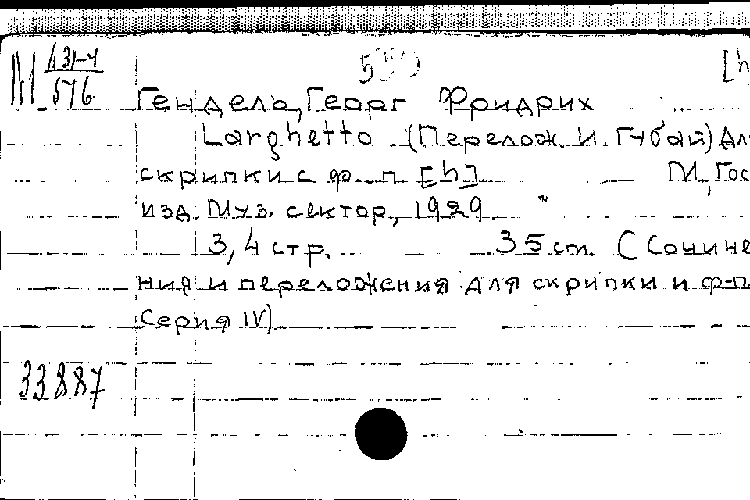 М 131-4/576 [h
Гендель, Георг Фридрих
Larghetto (Перелож. И. Губай) Для
скрипки с ф.-п. [h] М., Гос
изд. Муз. сектор, 1929.
3, 4 стр. 35 cm. (Сочине
ния и переложения для скрипки и ф-п
Серия IV)
33887